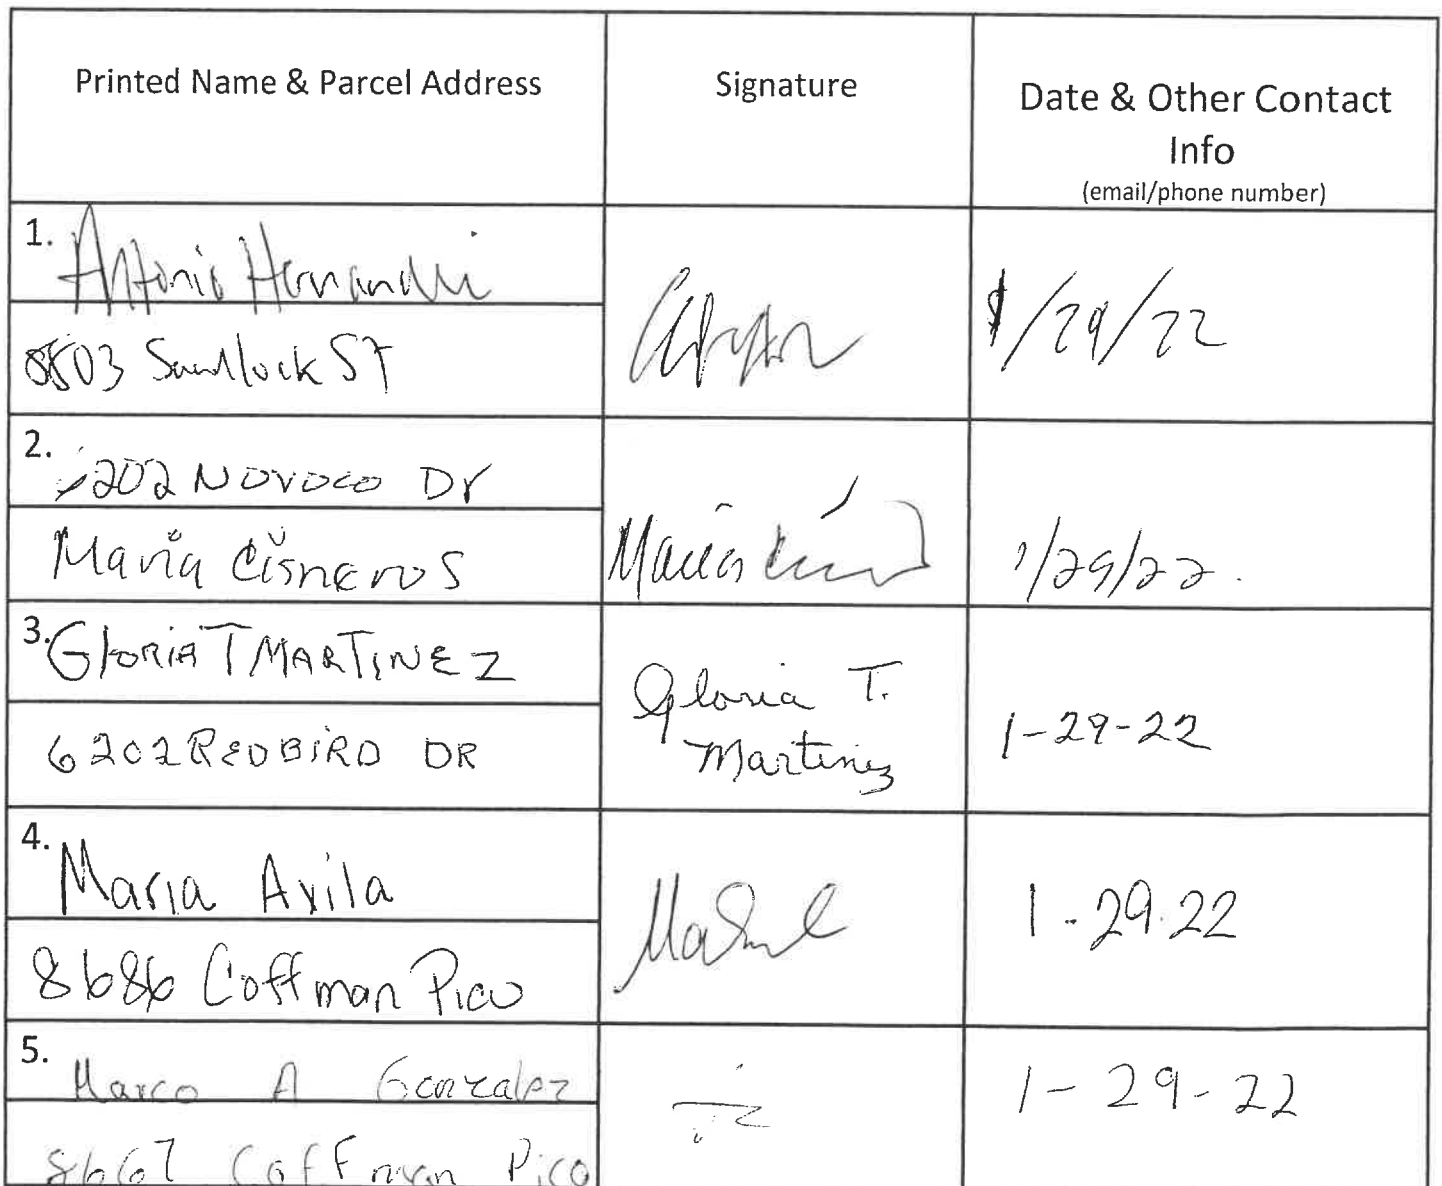 Printed Name & Parcel Address
Signature
Date & Other Contact
Info
(email/phone number)
1.
Antonio
8503 ST
1/29/22
2.
202 Dr
Maria Cisneros
Maria
1/29/22.
3.
Gloria T MARTINEZ
6202 REDBIRD DR
Gloria T.
Martinez
1-29-22
4.
Maria Avila
8686 Coffman Pico
1-29-22
5.
Marco A Gonzalez
8667 Coffman Pico
1-29-22